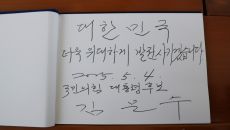 대한민국
더욱 위대하게 발전시키겠습니다
2025. 5. 4.
국민의힘 대통령후보
김문수